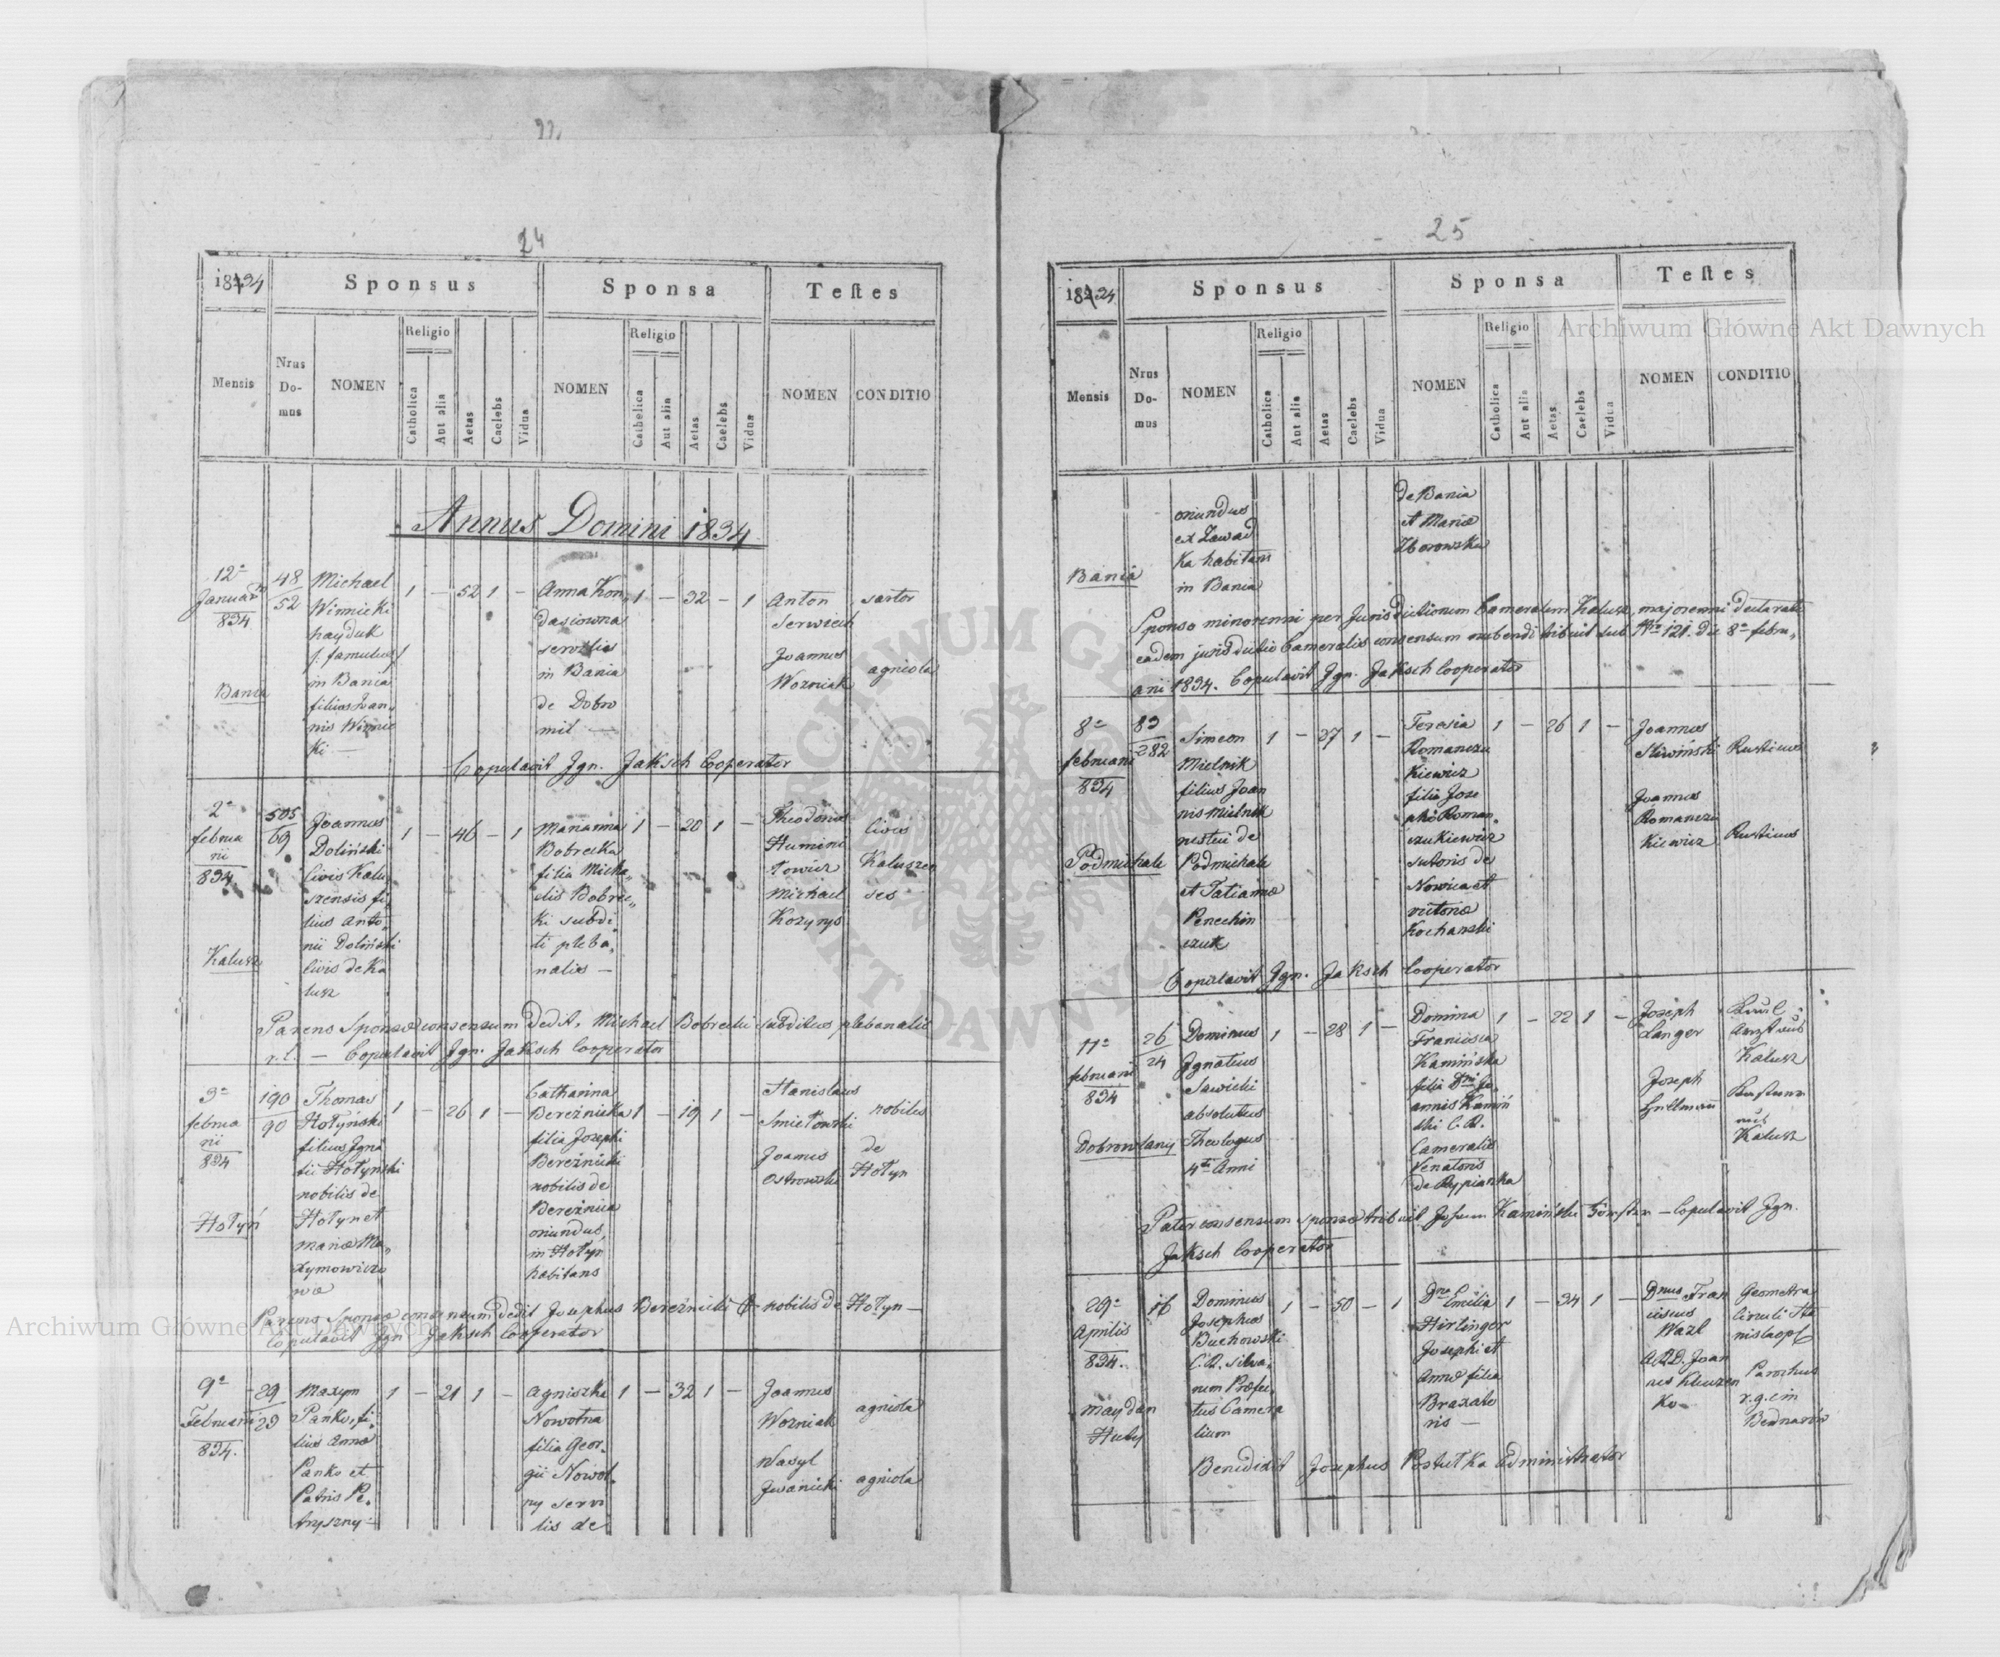 24
1834
Sponsus
Sponsa
Testes
Mensis
Nrus Domus
NOMEN
Religio
Catholica
Aut alia
Aetas
Caelebs
Vidua
NOMEN
Religio
Catholica
Aut alia
Aetas
Caelebs
Vidua
NOMEN
CONDITIO
Annus Domini 1834
12a
Januar
834
Bania
48
52
Michael
Winnicki
hayduk
s. famulus
in Bania
filius Joan
nis Winnic
ki —
1 — 52 1 —
Anna Kon
dasiowna
servilis
in Bania
de Dobro
mil —
1 — 32 — 1
Anton
Serwiech
Joannes
Wozniak
sartor
agricola
Copulavit Ign. Jaksch Coperator
2a
februa
rii
834
Kalusz
505
69
Joannes
Doliński
Civis Kalu
szensis fi
lius Anto
nii Doliński
Civis de Ka
lusz
1 — 46 — 1
Marianna
Bobrecka
filia Micha
elis Bobrec
ki subdi
ti pleba
nalis —
1 — 20 1 —
Theodorus
Humini
lowicz
Michael
Kozyrys
Cives
Kaluszen
ses
Parens Sponsæ consensum dedit, Michael Bobrecki subditus plebanalis
r.l. — Copulavit Ign. Jaksch Cooperator
3a
februa
rii
834
Hołyń
190
90
Thomas
Hołyński
filius Igna
tii Hołyński
nobilis de
Hołyn et
Mariæ Ma
xymowiczo
wa
1 — 26 1 —
Catharina
Bereźnicka
filia Josephi
Bereźnicki
nobilis de
Bereźnica
oriundus,
in Hołyn
habitans
1 — 19 1 —
Stanislaus
Smietowski
Joannes
Ostrowski
nobiles
de
Hołyn
Parens Sponsæ consensum dedit Josephus Bereźnicki nobilis de Hołyn —
Copulavit Ign. Jaksch Cooperator
9a
Februarii
834.
29
29
Maxym
Panko, fi
lius Annæ
Panko et
Patris Pe
tryszny —
1 — 21 1 —
Agniszka
Nowotna
filia Geor
gii Nowot
ny servi
lis de
1 — 32 1 —
Joannes
Wozniak
Wasyl
Iwanicki
agricola
agricola
25
1834
Sponsus
Sponsa
Testes
Mensis
Nrus Domus
NOMEN
Religio
Catholica
Aut alia
Aetas
Caelebs
Vidua
NOMEN
Religio
Catholica
Aut alia
Aetas
Caelebs
Vidua
NOMEN
CONDITIO
Bania
oriundus
ex Zawad
ka habitans
in Bania
de Bania
et Mariæ
Zborowska
Sponso minorenni per Jurisdictionem Cameralem Kalusz, majorenni declarate
eadem jurisdictio Cameralis consensum nubendi tribuit sub Nro 121. Die 8a febru
arii 1834. Copulavit Ign. Jaksch Cooperator
8a
februarii
834
Podmichale
83
282
Simeon
Mielnik
filius Joan
nis Mielnik
rustici de
Podmichale
et Tatianæ
Penechin
czuk
1 — 27 1 —
Teresia
Romanczu
kiewicz
filia Jose
phi Roman
czukiewicz
sutoris de
Nowica et
victoriæ
Kochanski
1 — 26 1 —
Joannes
Sliwiński
Joannes
Romanczu
kiewicz
Rusticus
Rusticus
Copulavit Ign. Jaksch Cooperator
11a
februarii
834
Dobrowlany
26
24
Dominus
Ignatius
Sawicki
absolutus
Theologus
4ti Anni
1 — 28 1 —
Domina
Francisca
Kamińska
filia Dni Jo
annis Kamiń
ski C.R.
Cameralis
Venatoris
de Rypianka
1 — 22 1 —
Joseph
Langer
Joseph
Kalusz
Kalusz
Pater consensum sponsæ tribuit, Johann Kamiński Förster — Copulavit Ign.
Jaksch Cooperator
29a
Aprilis
834.
Maydan
Huty
16
Dominus
Josephus
Buchowski
C.R. silva
rum Præfec
tus Camera
lium
1 — 50 — 1
Dna Emilia
Hirtinger
Josephi et
Annæ filia
Braxato
ris —
1 — 34 1 —
Dnus Fran
ciscus
Wazl
A.R.D. Joan
nes Kluczen
ko
Geometra
Circuli Sta
nislaopl
Parochus
r.g. in
Bednarów
Benedixit Josephus Postutka Administrator
Archiwum Główne Akt Dawnych
Archiwum Główne Akt Dawnych
ARCHIWUM GŁÓWNE AKT DAWNYCH